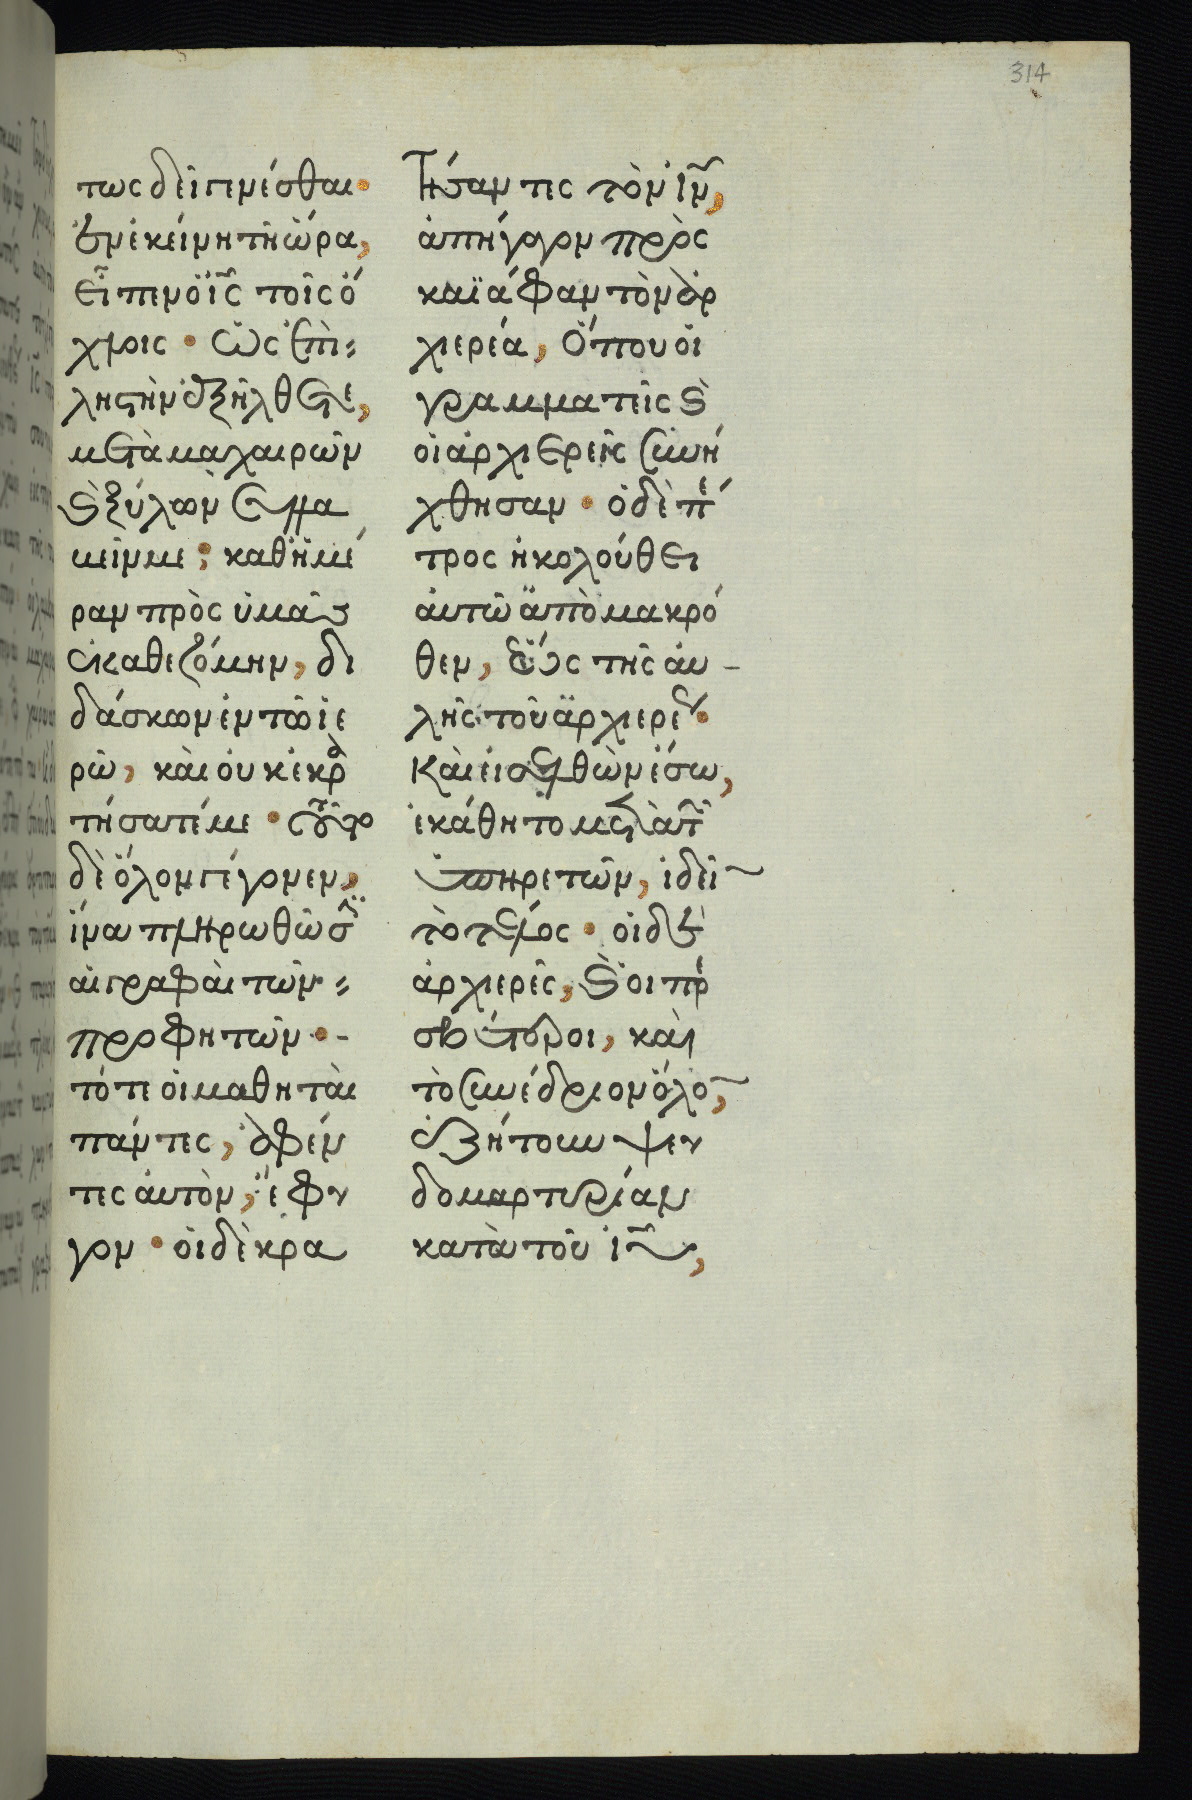 314
τως δεῖ γενέσθαι·
ἐν ἐκείνη τῆ ὥρα,
εἶπεν ὁ ἰς τοῖς ὄ
χλοις· ὡς ἐπὶ
ληστὴν ἐξήλθετε,
μετὰ μαχαιρῶν
ϗ ξύλων συλλα
βεῖν με; καθ' ἡμέ
ραν πρὸς ὑμᾶς
ἐκαθεζόμην, δι
δάσκων ἐν τῶ ἱε
ρῶ, καὶ οὐκ ἐκρα
τήσατέ με· τοῦτο
δὲ ὅλον γέγονεν,
ἵνα πληρωθῶσιν
αἱ γραφαὶ τῶν
προφητῶν·
τότε οἱ μαθηταὶ
πάντες, ἀφέν
τες αὐτὸν, ἔφυ
γον· οἱ δὲ κρα
τήσαντες τὸν ἰν,
ἀπήγαγον πρὸς
καϊάφαν τὸν ἀρ
χιερέα, ὅπου οἱ
γραμματεῖς ϗ
οἱ ἀρχιερεῖς συνή
χθησαν· ὁ δὲ πέ
τρος ἠκολούθει
αὐτῶ ἀπὸ μακρό
θεν, ἕως τῆς αὐ
λῆς τοῦ ἀρχιερέως·
καὶ εἰσελθὼν ἔσω,
ἐκάθητο μετὰ τῶν
ὑπηρετῶν, ἰδεῖν
τὸ τέλος· οἱ δὲ
ἀρχιερεῖς, ϗ οἱ πρε
σβύτεροι, καὶ
τὸ συνέδριον ὅλον,
ἐζήτουν ψευ
δομαρτυρίαν
κατὰ τοῦ ἰυ,